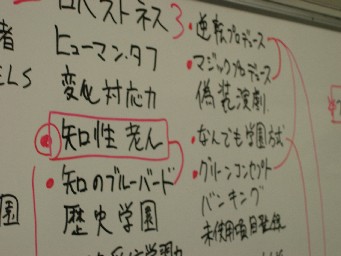 ロバストネス
ヒューマン・タフ
変化対応力
知性 老人
知のブルーバード
歴史学園
者
ELS
園
3
逆転プロデュース
マジックプロデュース
偽装演劇
なんでも学園方式
グリーンコンセプト
バンキング
未使用項目登録